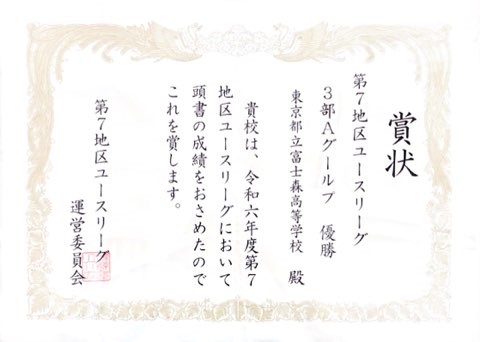 賞状
第7地区ユースリーグ
3部Aグループ 優勝
東京都立富士森高等学校 殿
貴校は、令和六年度第7
地区ユースリーグにおいて
頭書の成績をおさめたので
これを賞します。
第7地区ユースリーグ
運営委員会